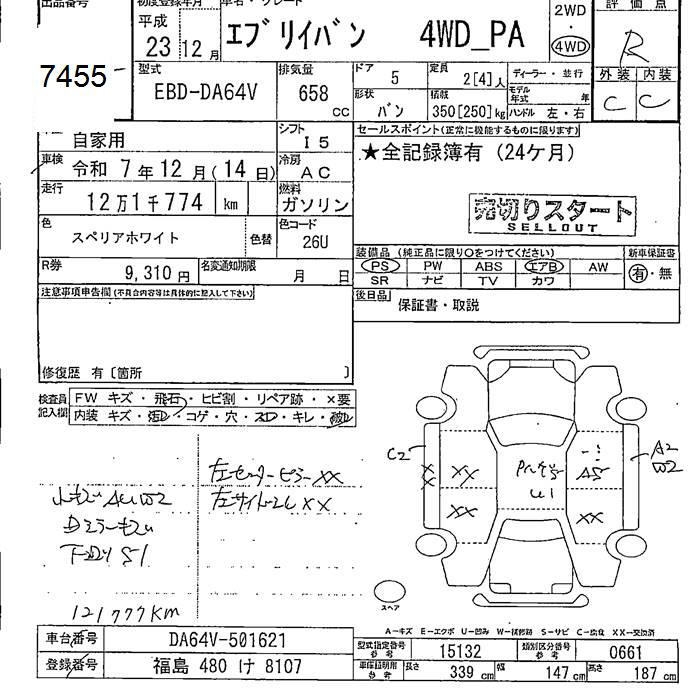 出品番号
初度登録年月
車名・グレード
2WD
評価点
平成
23 12月
エブリイバン 4WD_PA
4WD
R
7455
型式
排気量
ドア 5
定員 2[4]人
ディーラー・並行
外装 内装
EBD-DA64V
658 CC
形状 バン
積載 350[250]kg
モデル年式 年
ハンドル 左・右
C C
自家用
シフト I5
セールスポイント(正常に機能するものに限ります)
車検 令和 7年12月(14日)
冷房 AC
★全記録簿有(24ケ月)
走行 12万1千774 km
燃料 ガソリン
売切りスタート
SELLOUT
色 スペリアホワイト
色替
色コード 26U
装備品(純正品に限り○をつけてください)
新車保証書
PS PW ABS エアB AW
有・無
SR ナビ TV カワ
R券 9,310円
名変通知期限 月 日
後日品 保証書・取説
注意事項申告欄(不具合内容等は具体的に記入して下さい)
修復歴 有〔箇所 〕
検査員記入欄
FW キズ・飛石・ヒビ割・リペア跡・×要
内装 キズ・
・コゲ・穴・
・キレ・
C2
XX
XX
XX
A2
W2
A5
XX
U1
左センターピラーXX
XX
121777KM
スペア
A―キズ E―エクボ U―凹み W―
S―サビ C―腐食 XX―交換済
車台番号 DA64V-501621
型式指定番号 参考 15132
類別区分番号 参考 0661
登録番号 福島 480 け 8107
車庫証明用 参考
長さ 339 cm
幅 147 cm
高さ 187 cm